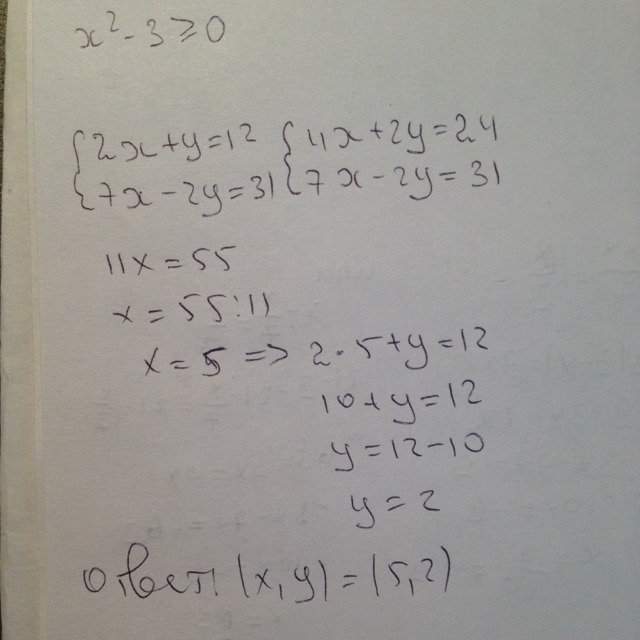 x² - 3 ≥ 0
{2x + y = 12 {4x + 2y = 24
{7x - 2y = 31 {7x - 2y = 31
11x = 55
x = 55 : 11
x = 5 => 2 · 5 + y = 12
10 + y = 12
y = 12 - 10
y = 2
ответ (x, y) = (5, 2)